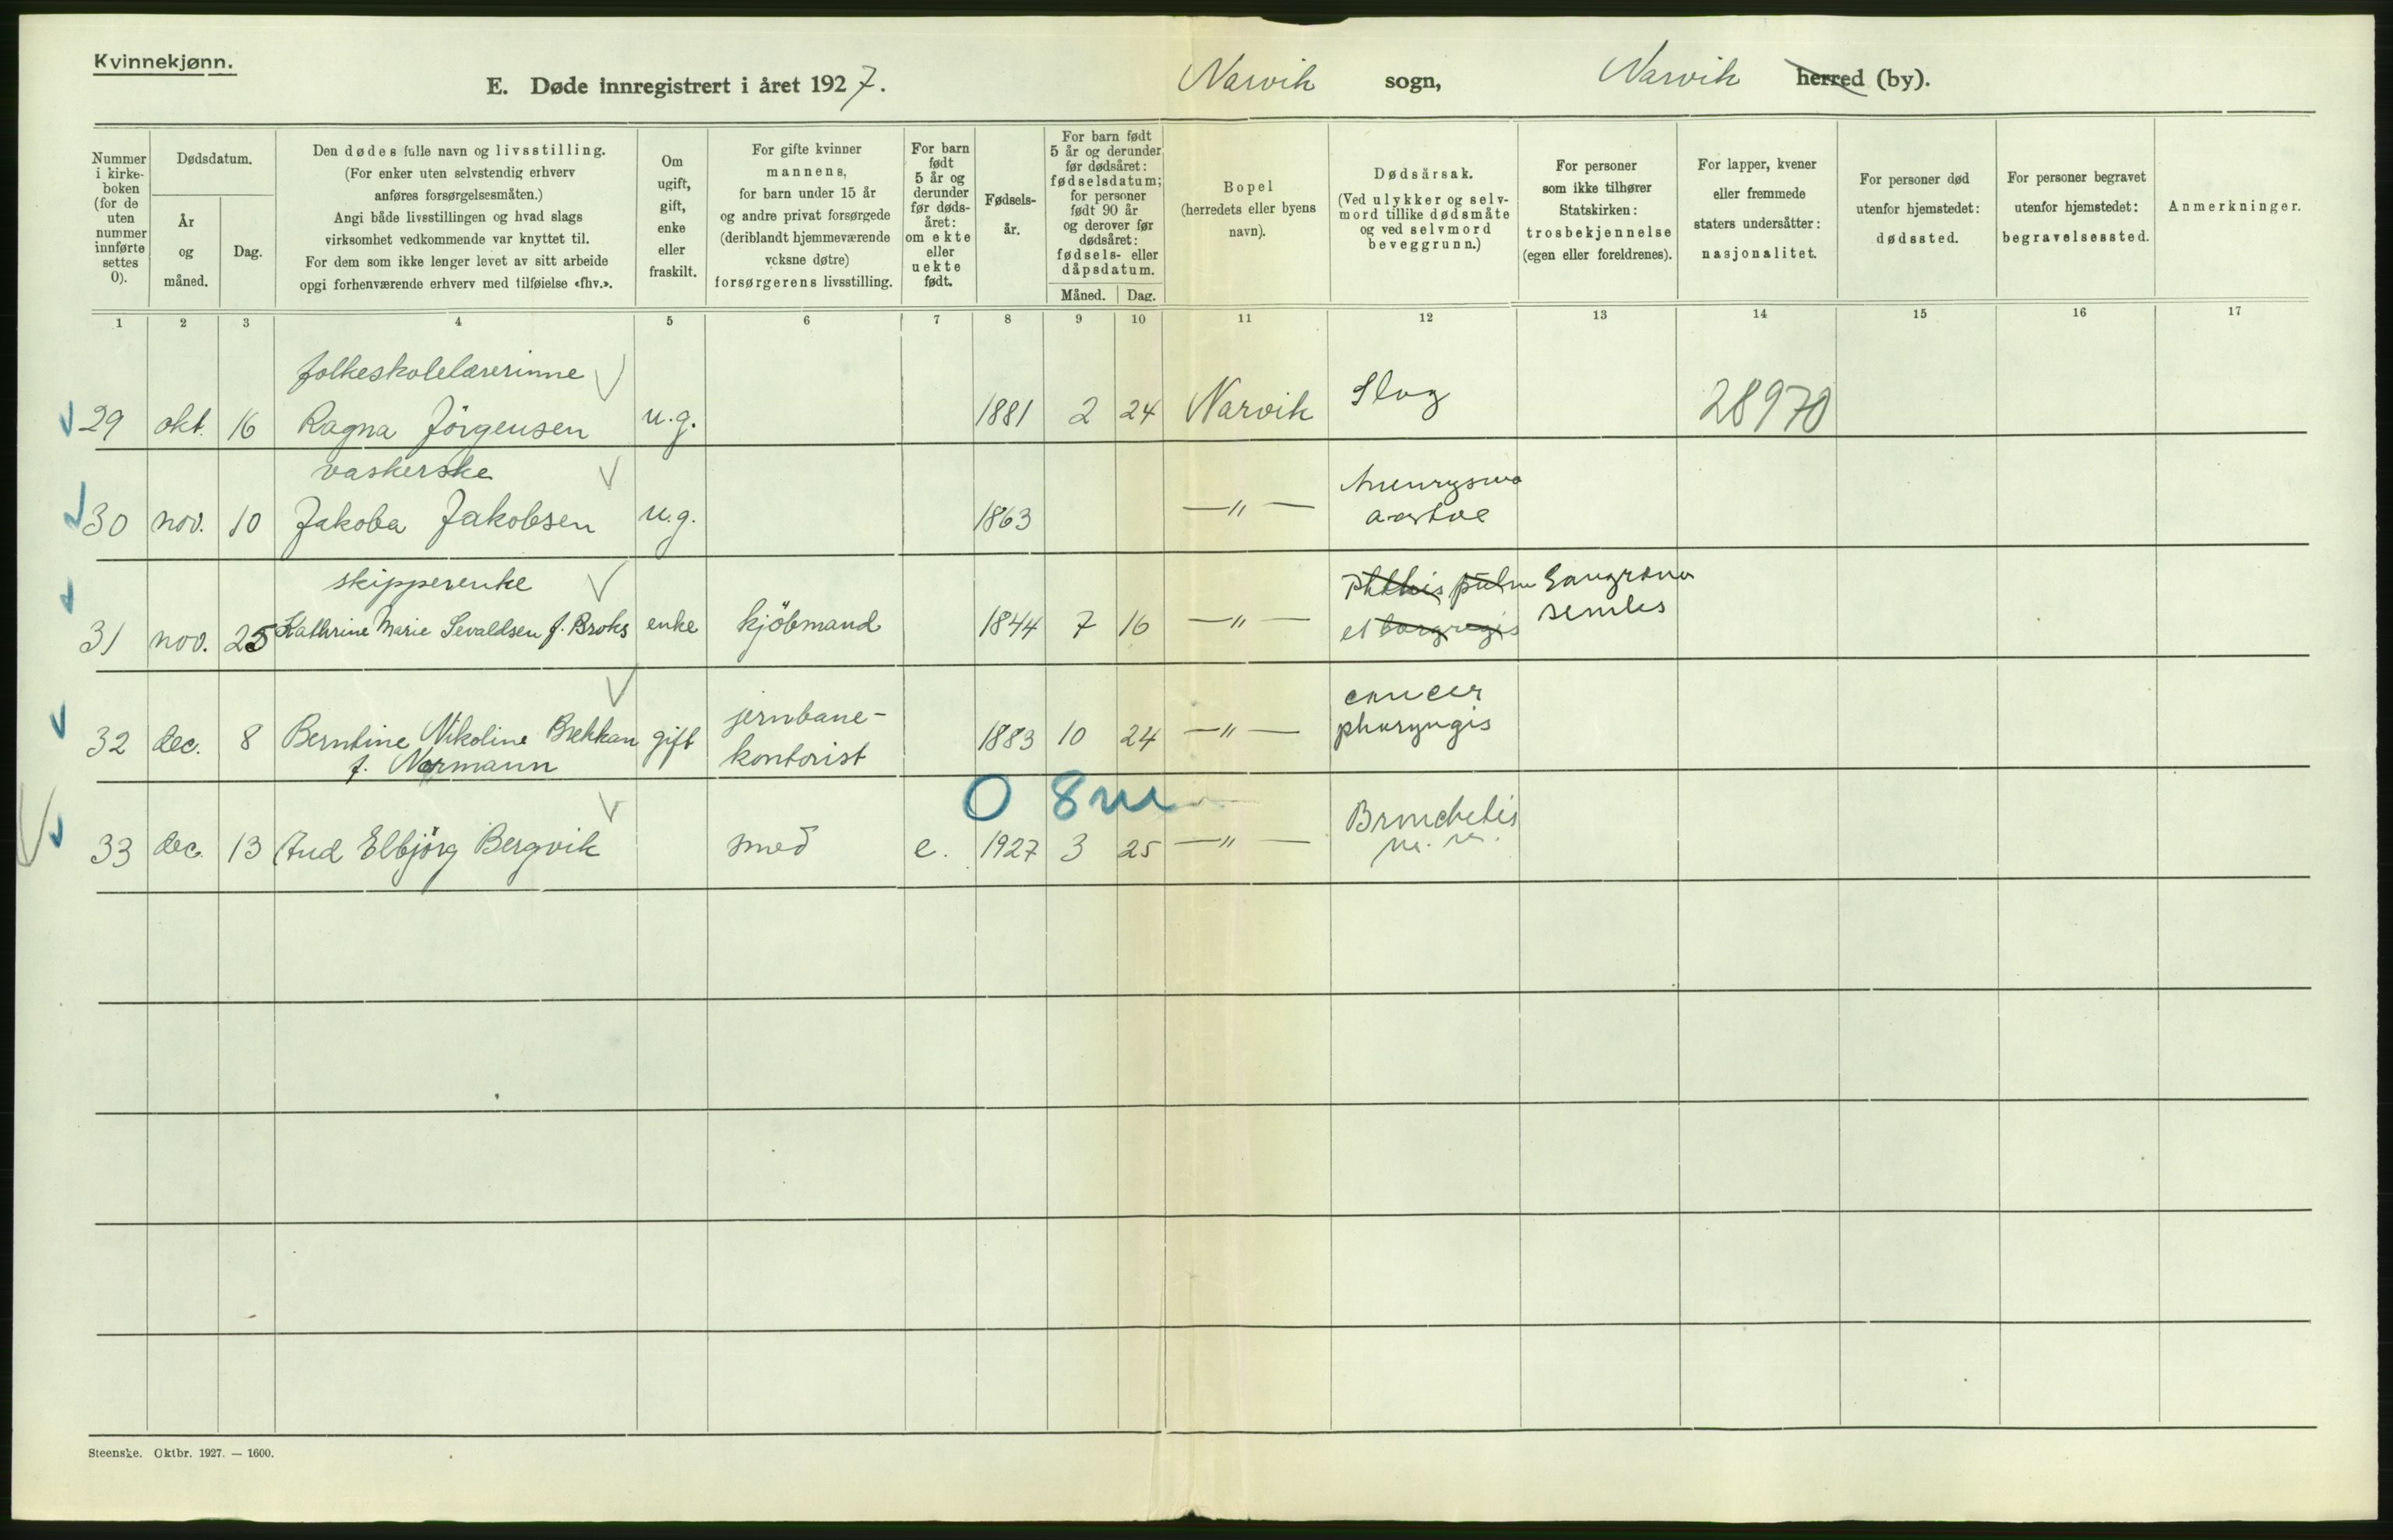 Kvinnekjønn.
E. Døde innregistrert i året 1927. Narvik sogn, Narvik herred (by).
Nummer i kirke-boken (for de uten nummer innførte settes 0).
Dødsdatum.
År og måned.
Dag.
Den dødes fulle navn og livsstilling.
(For enker uten selvstendig erhverv
anføres forsørgelsesmåten.)
Angi både livsstillingen og hvad slags
virksomhet vedkommende var knyttet til.
For dem som ikke lenger levet av sitt arbeide
opgi forhenværende erhverv med tilføielse «fhv.».
Om ugift, gift, enke eller fraskilt.
For gifte kvinner
mannens,
for barn under 15 år
og andre privat forsørgede
(deriblandt hjemmeværende
voksne døtre)
forsørgerens livsstilling.
For barn født 5 år og derunder før døds-året: om ekte eller uekte født.
Fødsels-år.
For barn født
5 år og derunder
før dødsåret:
fødselsdatum;
for personer
født 90 år
og derover før
dødsåret:
fødsels- eller
dåpsdatum.
Måned. Dag.
Bopel
(herredets eller byens
navn).
Dødsårsak.
(Ved ulykker og selv-
mord tillike dødsmåte
og ved selvmord
beveggrunn.)
For personer
som ikke tilhører
Statskirken:
trosbekjennelse
(egen eller foreldrenes).
For lapper, kvener
eller fremmede
staters undersåtter:
nasjonalitet.
For personer død
utenfor hjemstedet:
dødssted.
For personer begravet
utenfor hjemstedet:
begravelsessted.
Anmerkninger.
1 2 3 4 5 6 7 8 9 10 11 12 13 14 15 16 17
folkeskolelærerinne
29 okt. 16 Ragna Jörgensen u.g. 1881 2 24 Narvik Slag 28970
vaskerske
30 nov. 10 Jakoba Jakobsen u.g. 1863 —"— Aneurysma
aortae
skipperenke
31 nov. 25 Kathrine Marie Sevaldsen f. Broks enke kjöbmand 1844 7 16 —"— Phthis pulm Gangræna
et laryngis senilis
32 dec. 8 Berntine Nikoline Brekkan gift jernbane-
kontorist 1883 10 24 —"— cancer
pharyngis
f. Normann
0 8m
33 dec. 13 Aud Elbjörg Bergvik smed e. 1927 3 25 —"— Bronchitis
Steenske. Oktbr. 1927. — 1600.